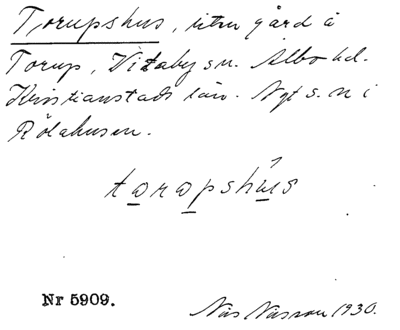 Torupshus, utm gård å
Torup, Vitaby sn. Albo hd.
Kristianstads län. Ngt s. n i
Rölahusen.
tarapshus
Nr 5909.
Nils 1930.